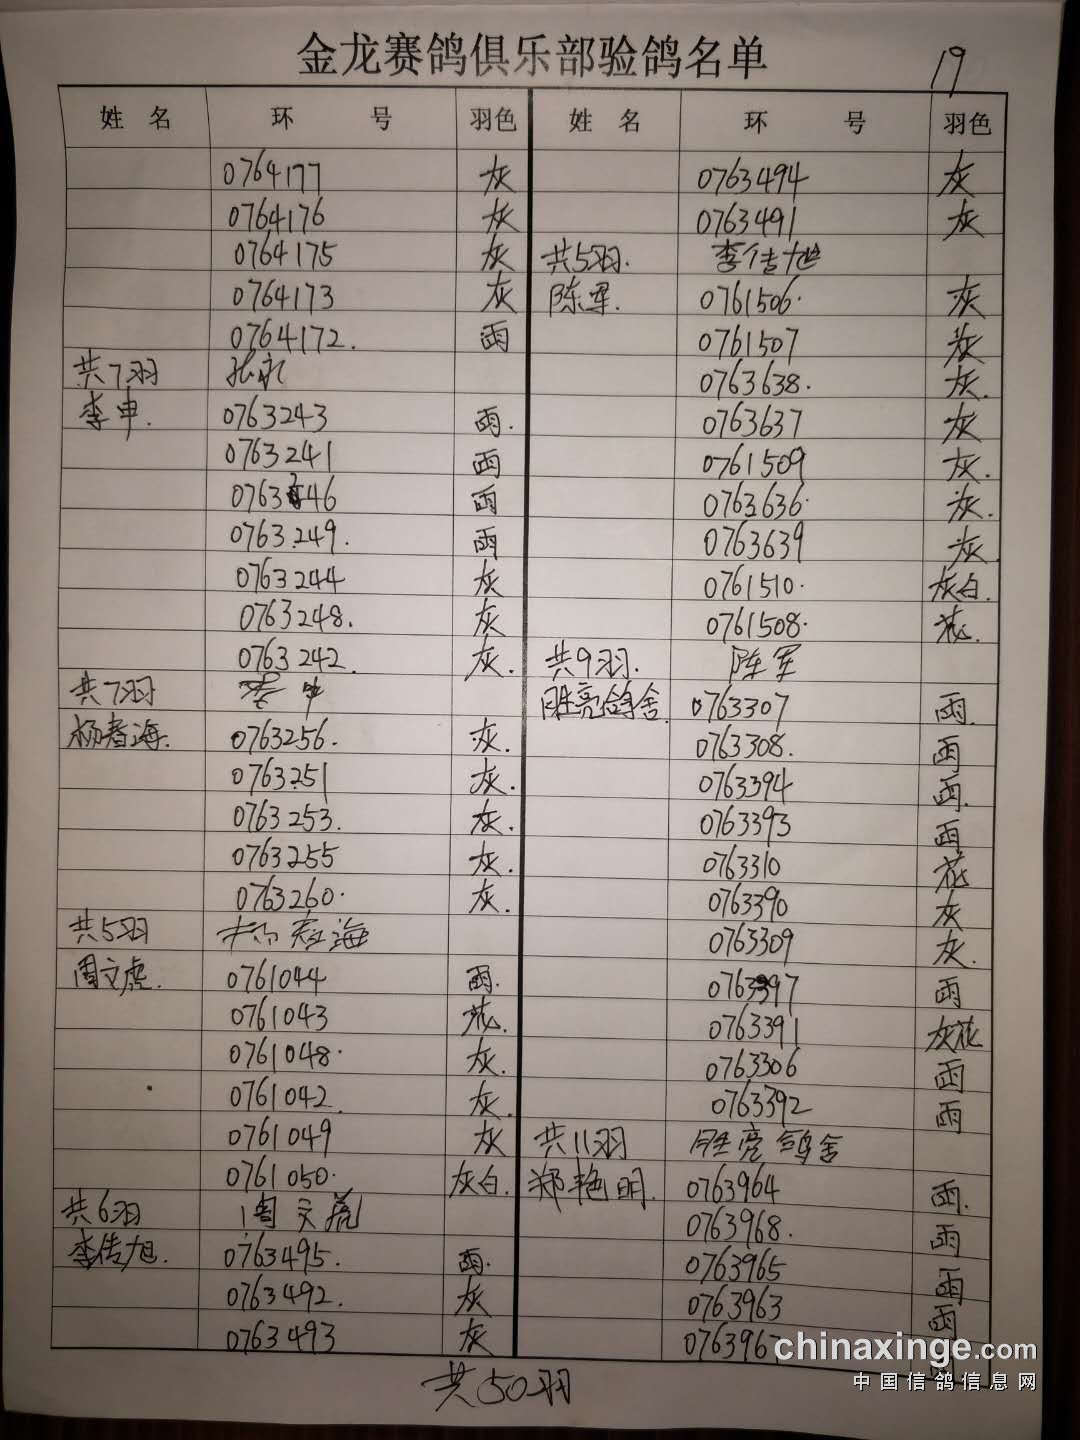 金龙赛鸽俱乐部验鸽名单
19
姓 名 环 号 羽色
0764177 灰
0764176 灰
0764175 灰
0764173 灰
0764172. 雨
共7羽
李申. 0763243 雨.
0763241 雨
0763246 雨
0763249. 雨
0763244 灰
0763248. 灰
0763242. 灰.
共7羽 李申
杨春海. 0763256. 灰.
0763251 灰.
0763253. 灰.
0763255 灰.
0763260. 灰.
共5羽 杨春海
周文虎. 0761044 雨.
0761043 花.
0761048. 灰.
0761042. 灰.
0761049 灰
0761050. 灰白.
共6羽 周文虎
李传旭. 0763495. 雨.
0763492. 灰
0763493 灰
姓 名 环 号 羽色
0763494 灰
0763491 灰
共5羽. 李传旭
陈军. 0761506. 灰
0761507 灰
0763638. 灰.
0763637 灰
0761509 灰.
0763636. 灰.
0763639 灰
0761510. 灰白.
0761508. 花.
共9羽. 陈军
胜亮鸽舍. 0763307 雨.
0763308. 雨
0763394 雨.
0763393 雨
0763310 花
0763390 灰
0763309 灰.
0763397 雨
0763391 灰花
0763306 雨
0763392 雨
共11羽 胜亮鸽舍
郑艳明. 0763964 雨.
0763968. 雨
0763965 雨
0763963 雨
0763967
共50羽
chinaxinge.com
中国信鸽信息网